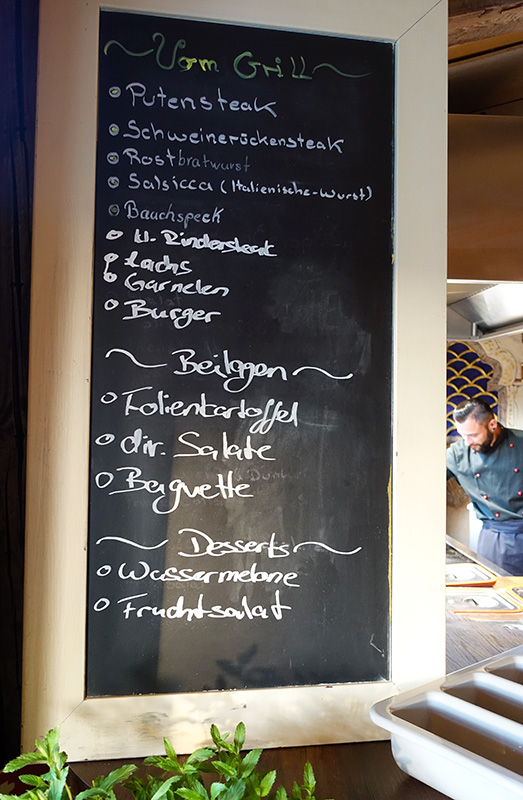 Vom Grill
Putensteak
Schweinerückensteak
Rostbratwurst
Salsicca (Italienische-Wurst)
Bauchspeck
kl. Rindersteak
Lachs
Garnelen
Burger
Beilagen
Folienkartoffel
div. Salate
Baguette
Desserts
Wassermelone
Fruchtsalat